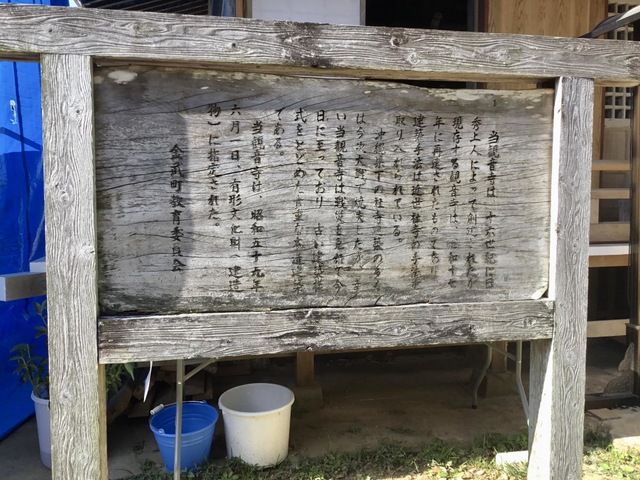 当観音寺は、十六世紀に日
秀上人によって創建されたが
現存する観音寺は、昭和十七
年に再建されたものであり
建築手法は近世社寺の手法が
取り入れられている。
沖縄県下の社寺建築の多く
は今次大戦で焼失したが、
い当観音寺は戦災を免れて今
日に至っており 古い建築様
式をとどめた貴重な木造建築
である。
当観音寺は、昭和五十九年
六月一日、有形文化財(建造
物)に指定された。
金武町教育委員会